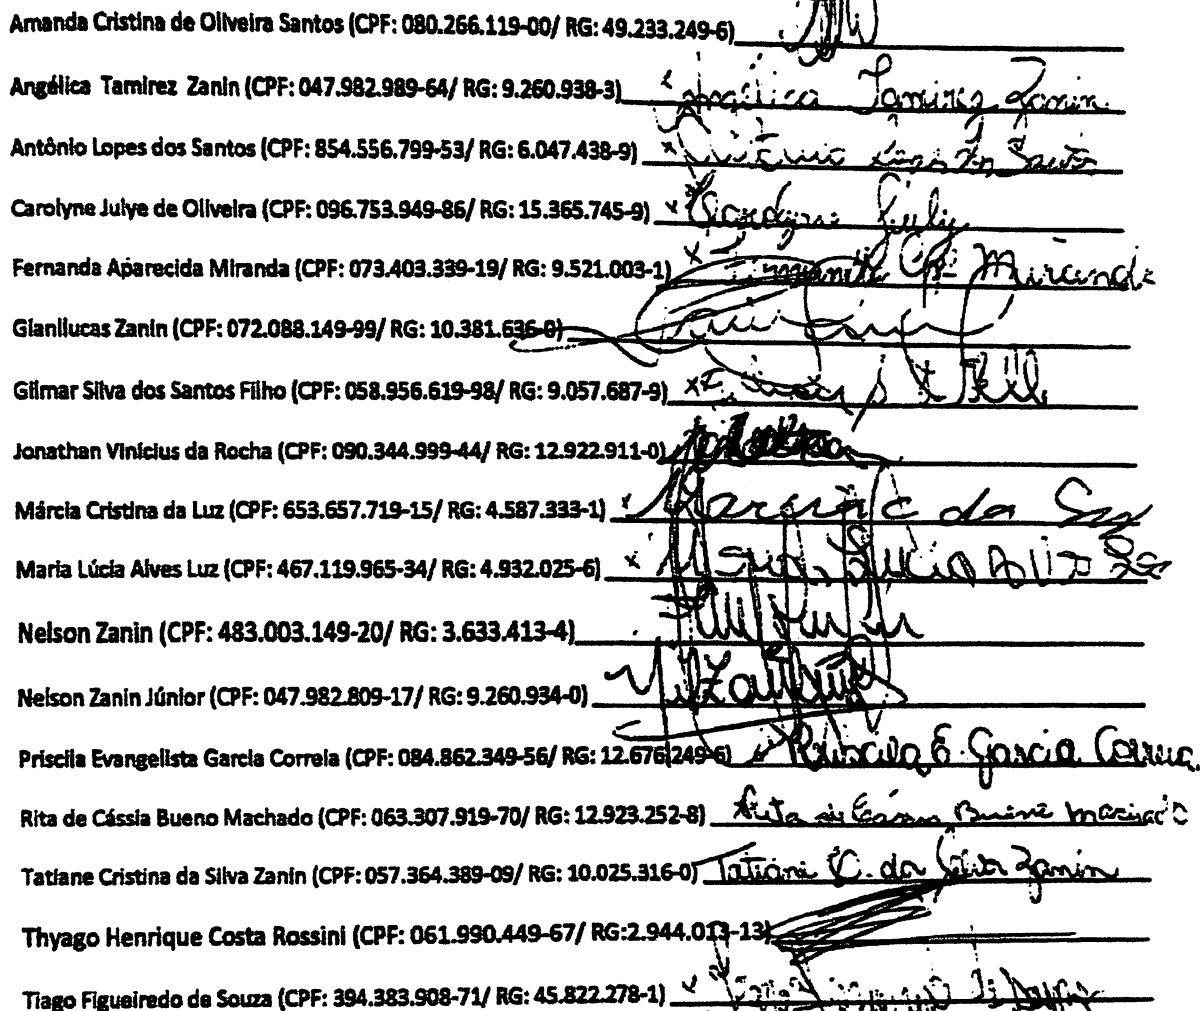 Amanda Cristina de Oliveira Santos (CPF: 080.266.119-00/ RG: 49.233.249-6)
Angélica Tamirez Zanin (CPF: 047.982.989-64/ RG: 9.260.938-3) x Angélica Tamirez Zanin
Antônio Lopes dos Santos (CPF: 854.556.799-53/ RG: 6.047.438-9) x Antonio Lopes dos Santos
Carolyne Julye de Oliveira (CPF: 096.753.949-86/ RG: 15.365.745-9) x Carolyne July
Fernanda Aparecida Miranda (CPF: 073.403.339-19/ RG: 9.521.003-1) x Fernanda Ap Miranda
Gianllucas Zanin (CPF: 072.088.149-99/ RG: 10.381.636-0)
Gilmar Silva dos Santos Filho (CPF: 058.956.619-98/ RG: 9.057.687-9) x
Jonathan Vinícius da Rocha (CPF: 090.344.999-44/ RG: 12.922.911-0)
Márcia Cristina da Luz (CPF: 653.657.719-15/ RG: 4.587.333-1) x Marcia C da Luz
Maria Lúcia Alves Luz (CPF: 467.119.965-34/ RG: 4.932.025-6) x Maria Lucia Alves Luz
Nelson Zanin (CPF: 483.003.149-20/ RG: 3.633.413-4)
Nelson Zanin Júnior (CPF: 047.982.809-17/ RG: 9.260.934-0)
Priscila Evangelista Garcia Correia (CPF: 084.862.349-56/ RG: 12.676.249-6) Priscila E. Garcia Correia
Rita de Cássia Bueno Machado (CPF: 063.307.919-70/ RG: 12.923.252-8) Rita de Cássia Bueno Machado
Tatiane Cristina da Silva Zanin (CPF: 057.364.389-09/ RG: 10.025.316-0) Tatiane C. da Silva Zanin
Thyago Henrique Costa Rossini (CPF: 061.990.449-67/ RG:2.944.013-13)
Tiago Figueiredo de Souza (CPF: 394.383.908-71/ RG: 45.822.278-1) x